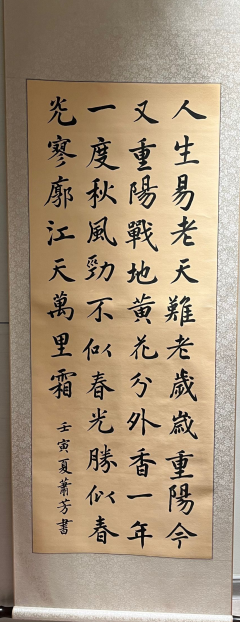 人生易老天難老歲歲重陽今
又重陽戰地黃花分外香一年
一度秋風勁不似春光勝似春
光寥廓江天萬里霜
壬寅夏蕭芳書